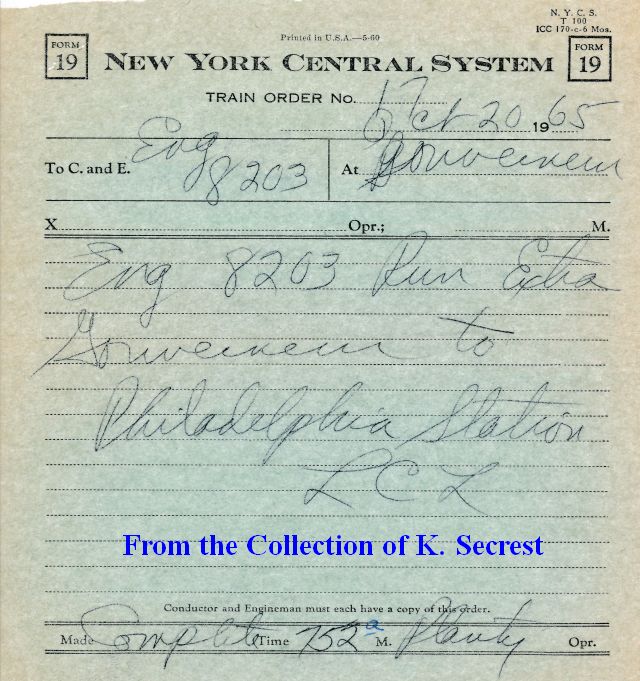 N. Y. C. S.
T 100
ICC 170-c-6 Mos.
Printed in U.S.A.—5-60
FORM 19 NEW YORK CENTRAL SYSTEM FORM 19
TRAIN ORDER No. 17
Oct 20 1965
To C. and E. Eng 8203 At Gouverneur
X Opr.; M.
Eng 8203 Run Extra
Gouverneur to
Philadelphia Station
L C L
From the Collection of K. Secrest
Conductor and Engineman must each have a copy of this order.
Made Complete Time 752 a M. Planty Opr.